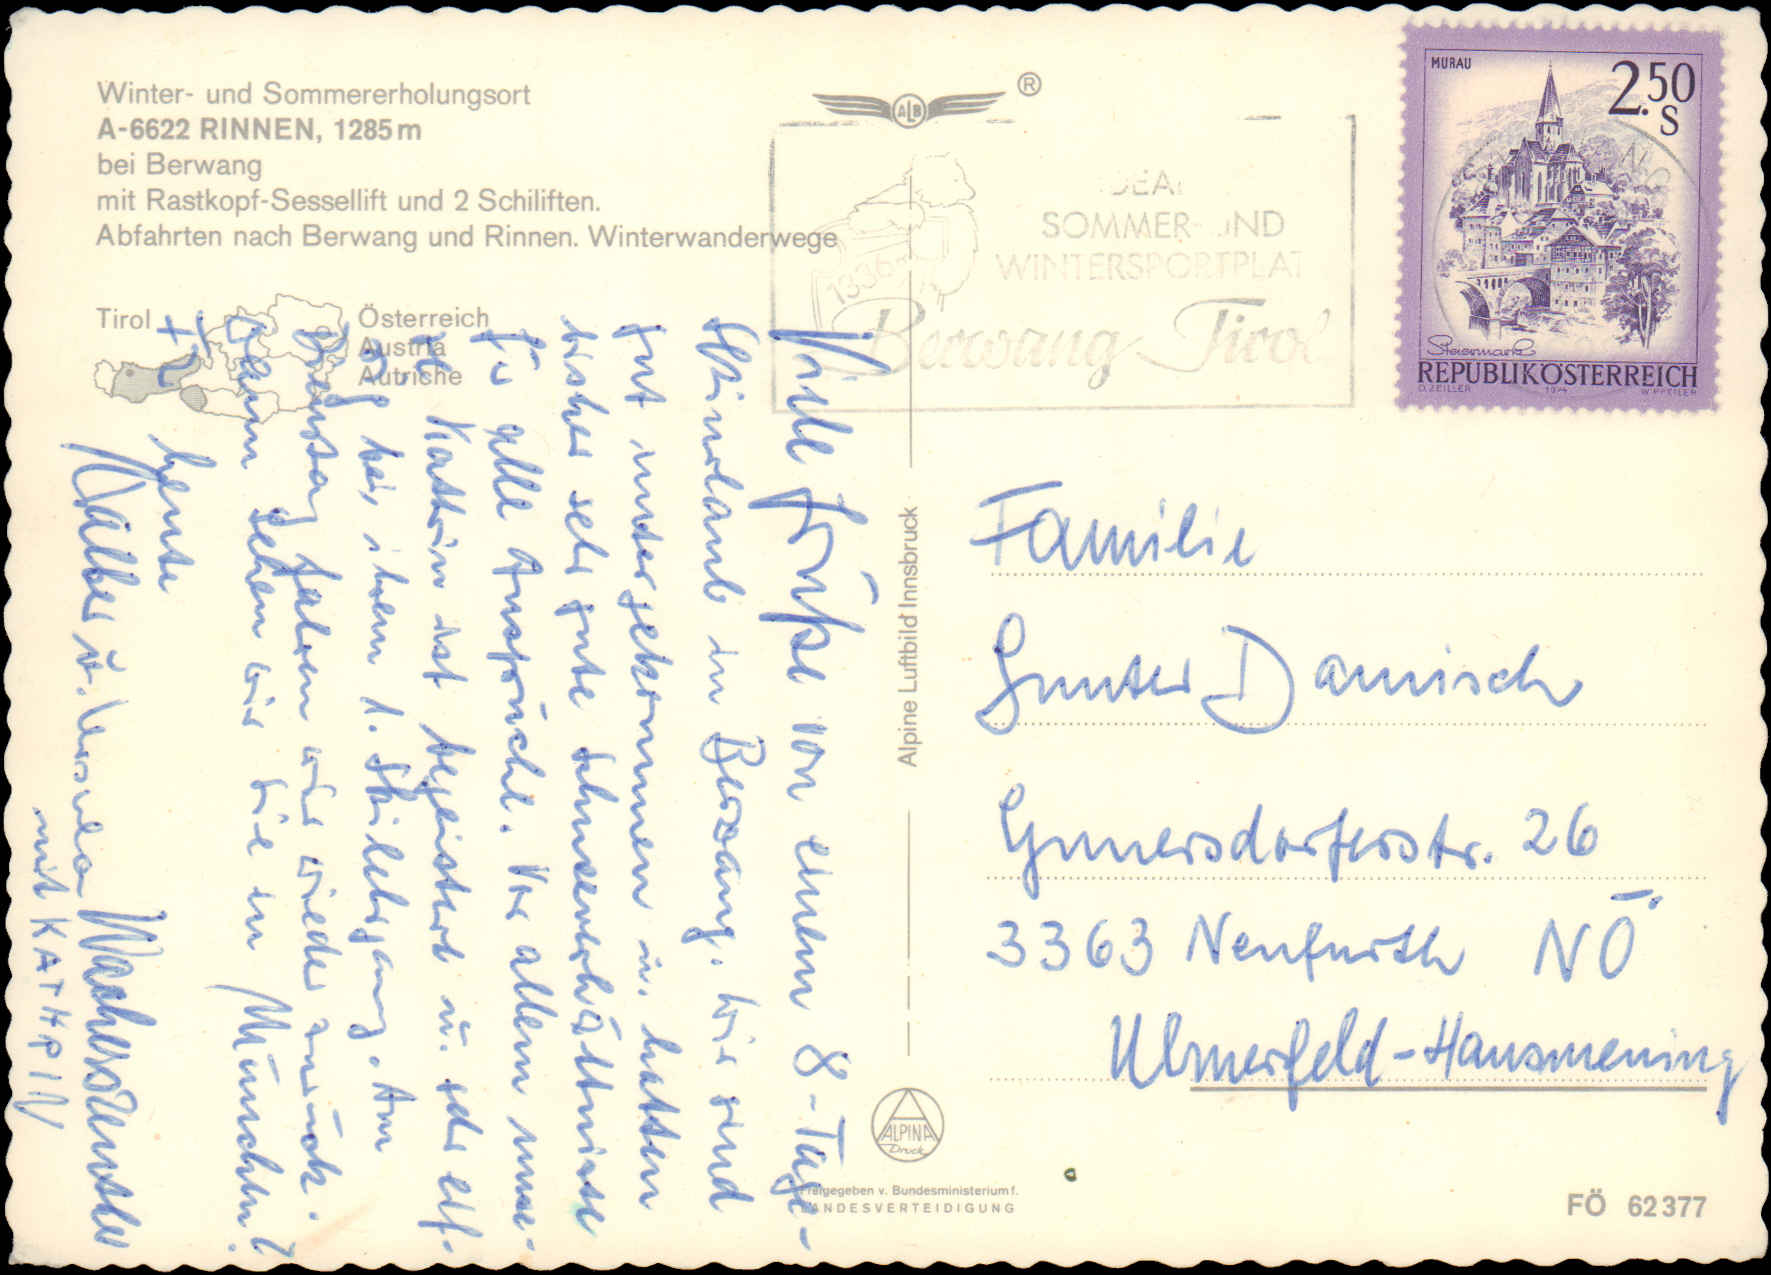 Winter- und Sommererholungsort
A-6622 RINNEN, 1285 m
bei Berwang
mit Rastkopf-Sessellift und 2 Schiliften.
Abfahrten nach Berwang und Rinnen. Winterwanderwege
Tirol
Österreich
Austria
Autriche
ALB
®
SOMMER- UND
WINTERSPORTPLATZ
Berwang Tirol
MURAU
2.50
S
Steiermark
REPUBLIK ÖSTERREICH
O. ZEILLER 1974 W. PFEILER
Viele Grüße von einem 8-Tage-
Skiurlaub in Berwang. Wir sind
gut untergekommen u. hatten
bisher sehr gute Schneeverhältnisse
für alle Ansprüche. Vor allem unse-
re Kathrin ist begeistert u. sehr eif-
rig bei ihrem 1. Skilehrgang. Am
Dienstag fahren wir wieder zurück.
Wann sehen wir Sie in München?
Herzl.
Walter u. Ursula
mit KATHRIN
Alpine Luftbild Innsbruck
Familie
Gunter Damisch
Gunnersdorferstr. 26
3363 Neufurth NÖ
Ulmerfeld-Hausmening
ALPINA
Druck
Freigegeben v. Bundesministerium f.
LANDESVERTEIDIGUNG
FÖ 62377